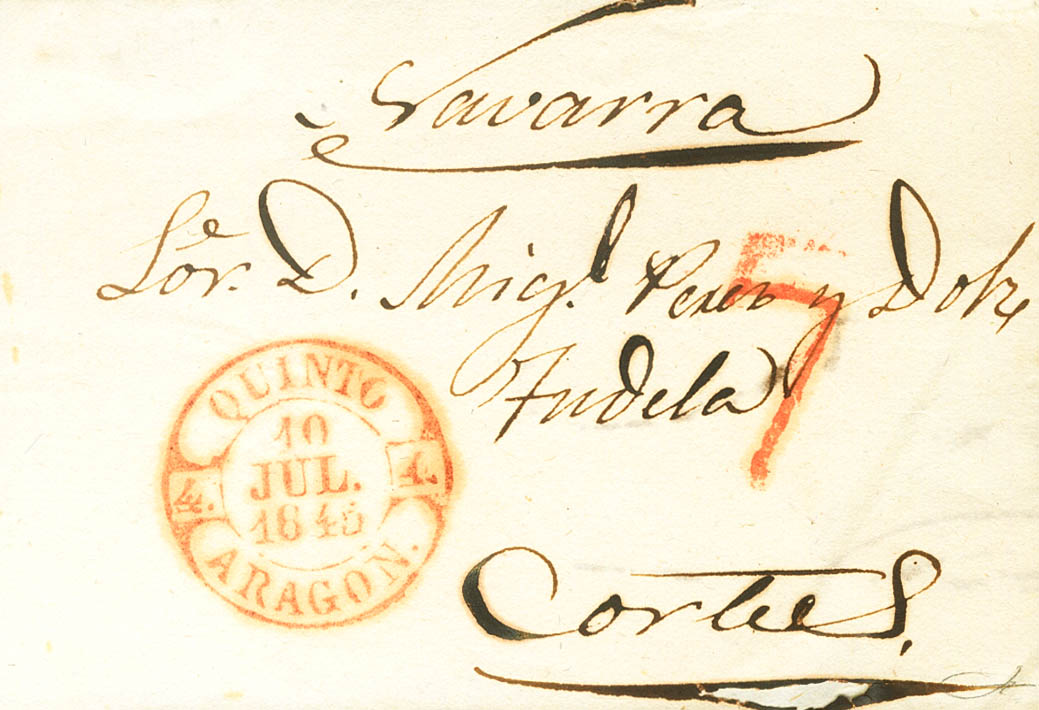 Navarra
Sōr. D. Migl. Perez y Dolz
Tudela
7
QUINTO
10
JUL.
4. 4.
ARAGON.
Cortes.